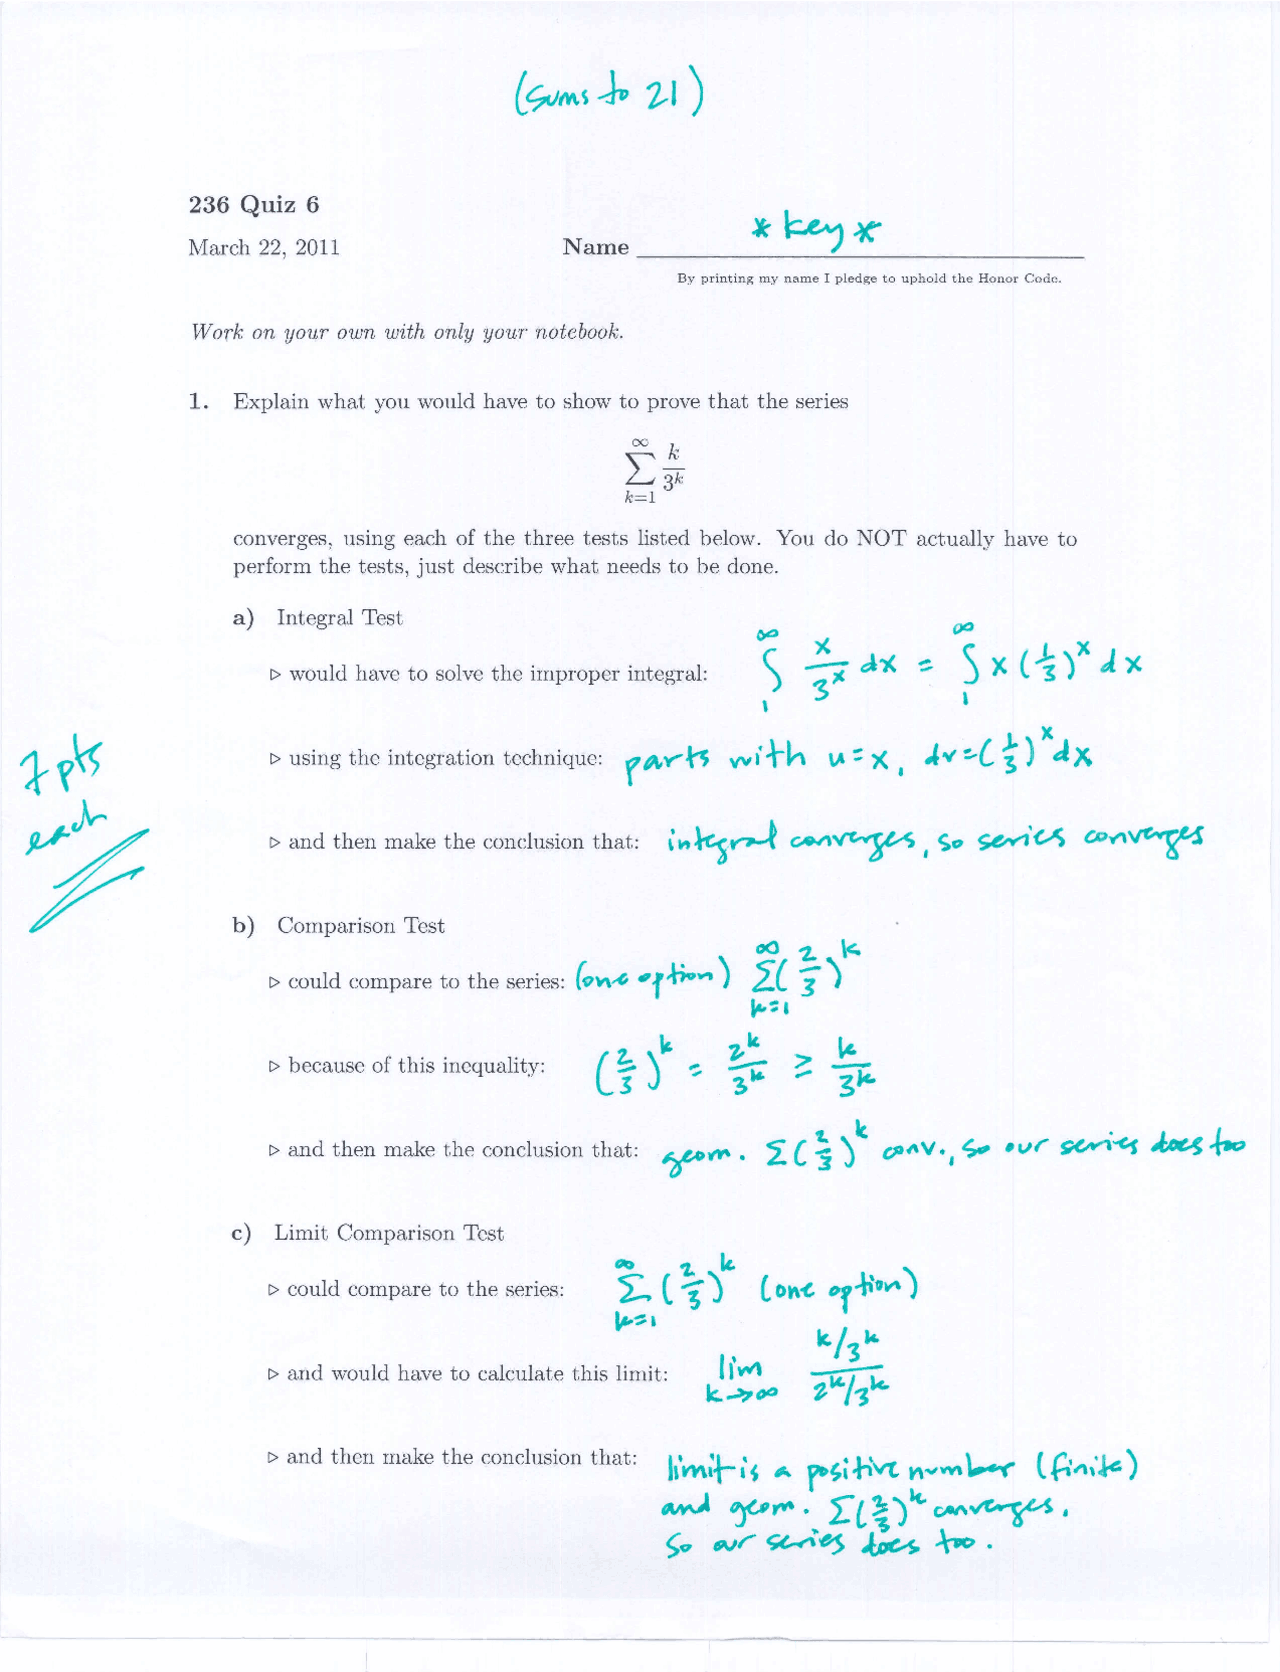 (sums to 21)
236 Quiz 6
March 22, 2011 Name * key *
By printing my name I pledge to uphold the Honor Code.
Work on your own with only your notebook.
1. Explain what you would have to show to prove that the series
∑_{k=1}^{∞} k/3^k
converges, using each of the three tests listed below. You do NOT actually have to
perform the tests, just describe what needs to be done.
a) Integral Test
▷ would have to solve the improper integral: ∫_1^∞ x/3^x dx = ∫_1^∞ x(1/3)^x dx
▷ using the integration technique: parts with u=x, dv=(1/3)^x dx
7 pts
each
▷ and then make the conclusion that: integral converges, so series converges
b) Comparison Test
▷ could compare to the series: (one option) ∑_{k=1}^{∞} (2/3)^k
▷ because of this inequality: (2/3)^k = 2^k/3^k ≥ k/3^k
▷ and then make the conclusion that: geom. Σ(2/3)^k conv., so our series does too
c) Limit Comparison Test
▷ could compare to the series: ∑_{k=1}^{∞} (2/3)^k (one option)
▷ and would have to calculate this limit: lim_{k→∞} (k/3^k)/(2^k/3^k)
▷ and then make the conclusion that: limit is a positive number (finite)
and geom. Σ(2/3)^k converges,
so our series does too.